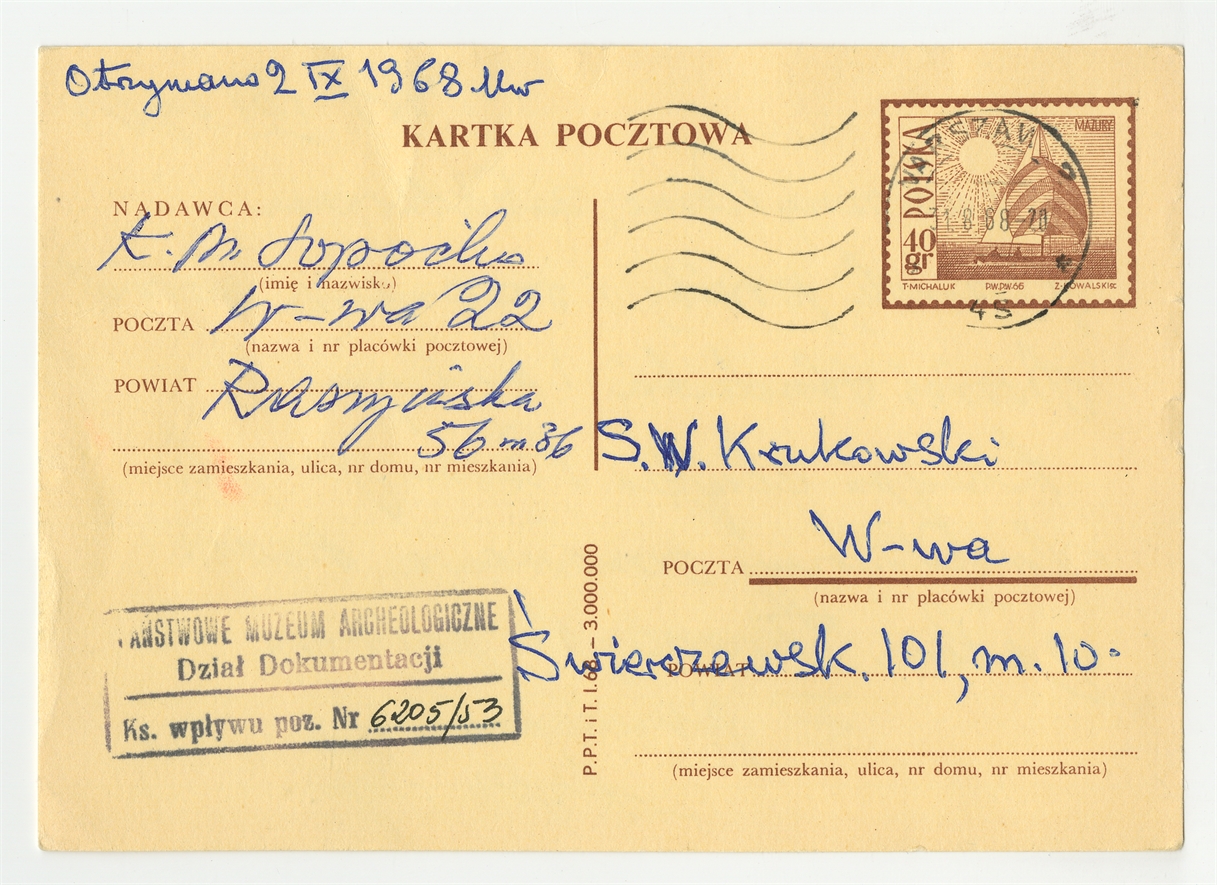 Otrzymano 2 IX 1968
KARTKA POCZTOWA
NADAWCA:
(imię i nazwisko)
POCZTA W-wa 22
(nazwa i nr placówki pocztowej)
POWIAT Raszyńska
56 m 36
(miejsce zamieszkania, ulica, nr domu, nr mieszkania)
PAŃSTWOWE MUZEUM ARCHEOLOGICZNE
Dział Dokumentacji
Ks. wpływu poz. Nr 6205/53
P.P.T. i T. I. 68 – 3.000.000
POLSKA
MAZURY
40
gr
T·MICHALUK P.W.P.W.66 Z·KOWALSKI sc
WARSZAWA
31.8.68-20
45
S.W. Krukowski
POCZTA W-wa
(nazwa i nr placówki pocztowej)
POWIAT
Świerczewsk. 101, m. 10.
(miejsce zamieszkania, ulica, nr domu, nr mieszkania)